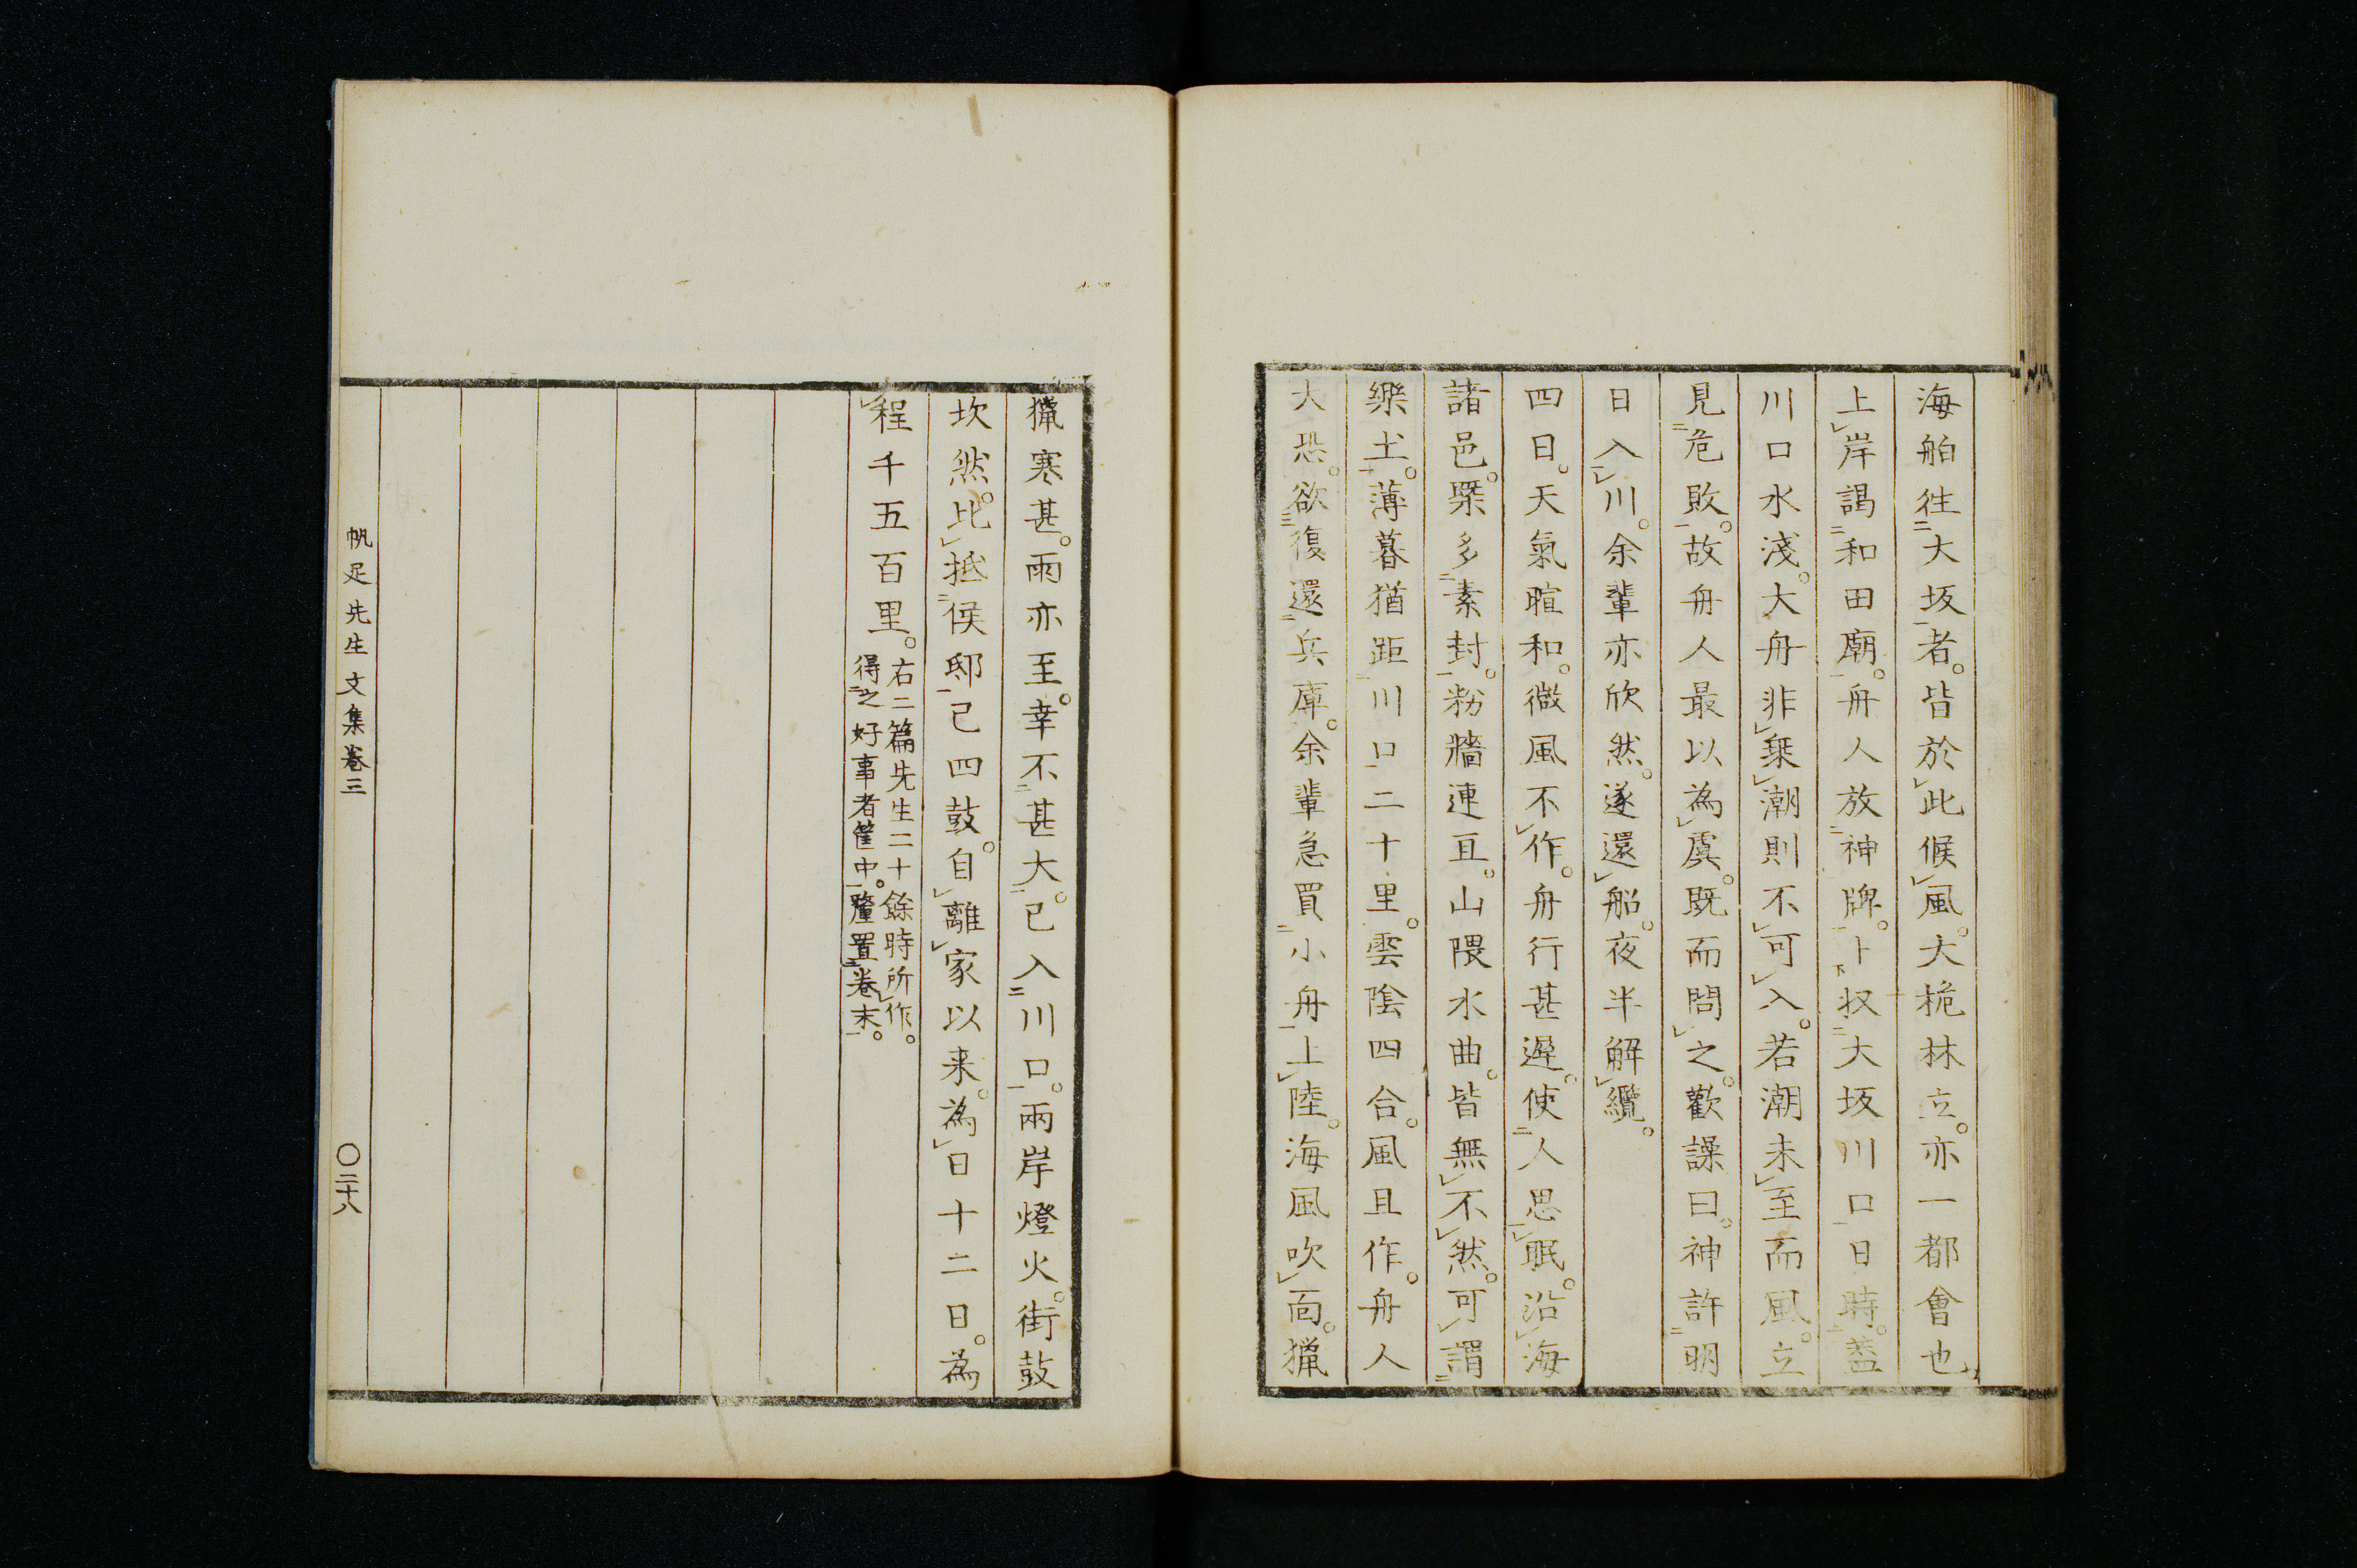 海舶往大坂者。皆於此候風。大桅林立。亦一都會也
上岸謁和田廟。舟人放神牌。卜収大坂川口日時。葢
川口水淺。大舟非乗潮則不可入。若潮未至而風立
見危敗。故舟人最以為虞。既而問之。歡譟曰。神許明
日入川。余輩亦欣然。遂還船。夜半解纜。
四日。天氣暄和。微風不作。舟行甚遲。使人思眠。沿海
諸邑。槩多素封。粉牆連亘。山隈水曲。皆無不然。可謂
樂土。薄暮猶距川口二十里。雲陰四合。風且作。舟人
大恐。欲復還兵庫。余輩急買小舟上陸。海風吹面。獵
獵寒甚。雨亦至。幸不甚大。已入川口。兩岸燈火。街鼓
坎然。比抵侯邸已四鼓。自離家以来。為日十二日。為
程千五百里。
右二篇先生二十餘時所作。
得之好事者篋中。釐置卷末。
帆足先生文集卷三
〇二十八